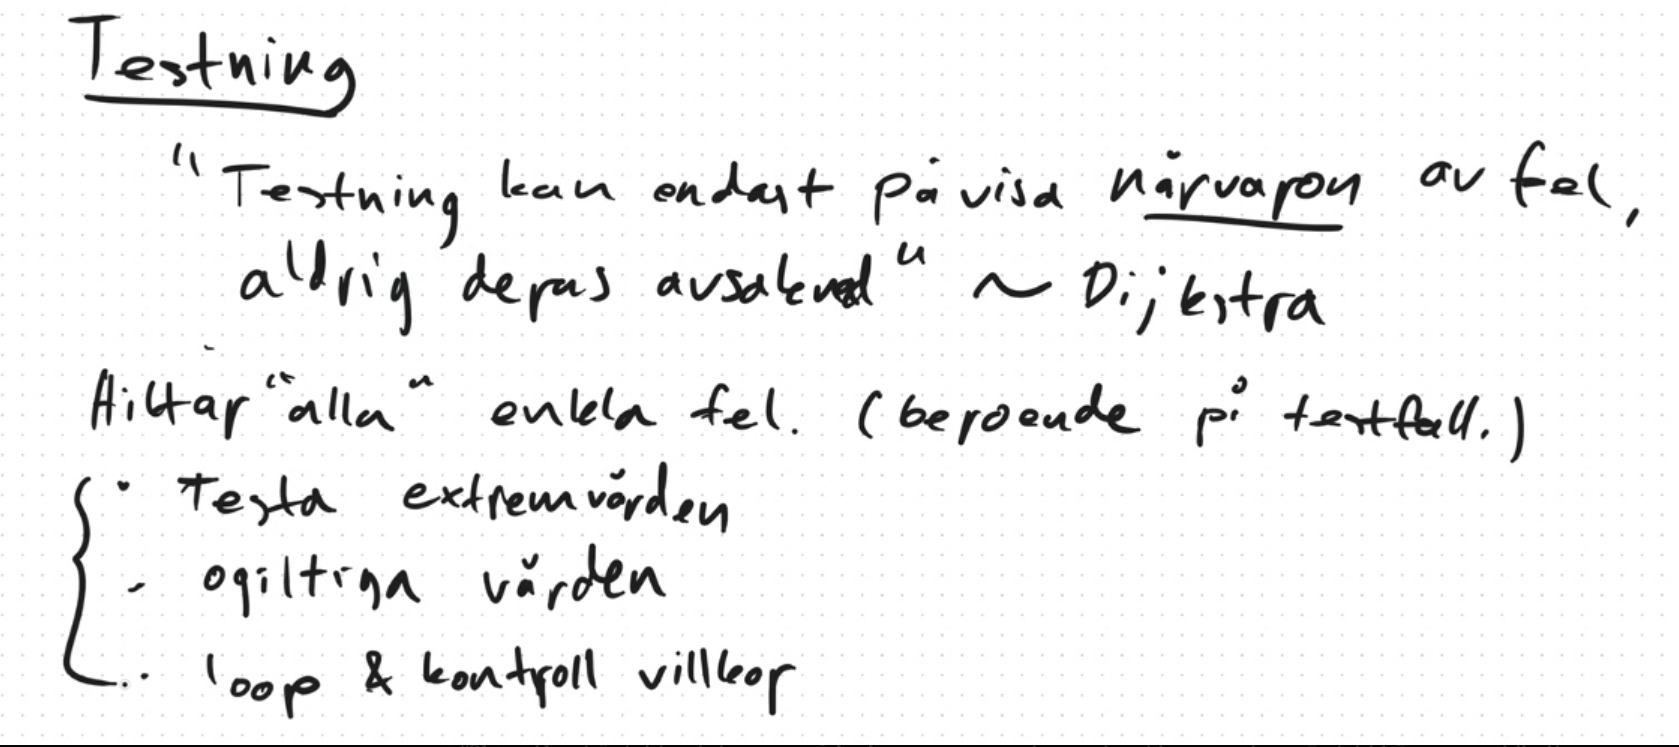 Testning
"Testning kan endast påvisa närvaron av fel,
aldrig deras avsaknad" ~ Dijkstra
Hittar "alla" enkla fel. (beroende på testfall.)
· Testa extremvärden
- ogiltiga värden
· loop & kontroll villkor